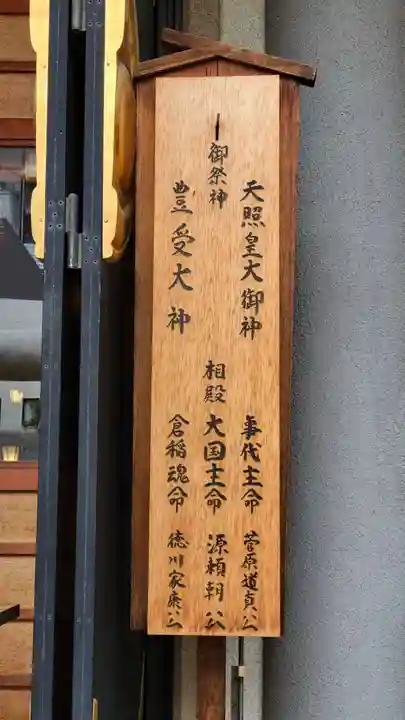 一御祭神
天照皇大御神
豊受大神
相殿
事代主命
大国主命
倉稲魂命
菅原道真公
源頼朝公
徳川家康公